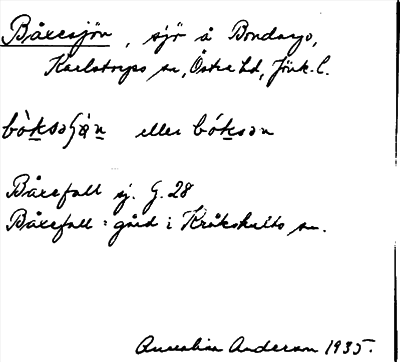 Båxesjön, sjö å Bondaryo,
Karlstorps sn, Östra hd, Jönk. l.
bòksəʃø̀n eller bóksən
Båxefall sj. G. 28
Båxefall = gård i Kråkshults sn.
Anderson 1935.